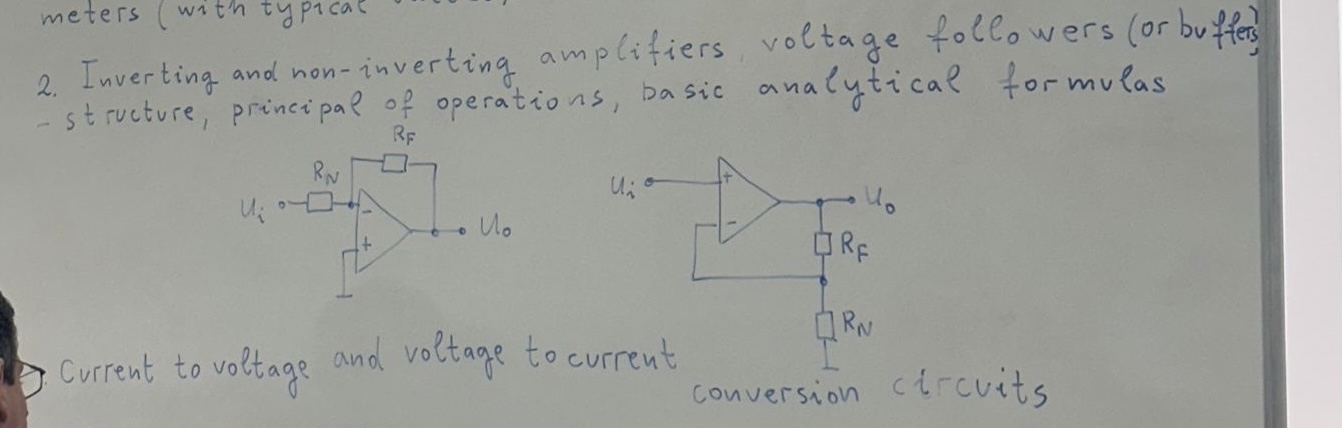 meters (with typical
2. Inverting and non-inverting amplifiers, voltage followers (or buffers)
- structure, principal of operations, basic analytical formulas
RF
RN
Ui
-
+
Uo
Ui
+
-
Uo
RF
RN
Current to voltage and voltage to current
conversion circuits